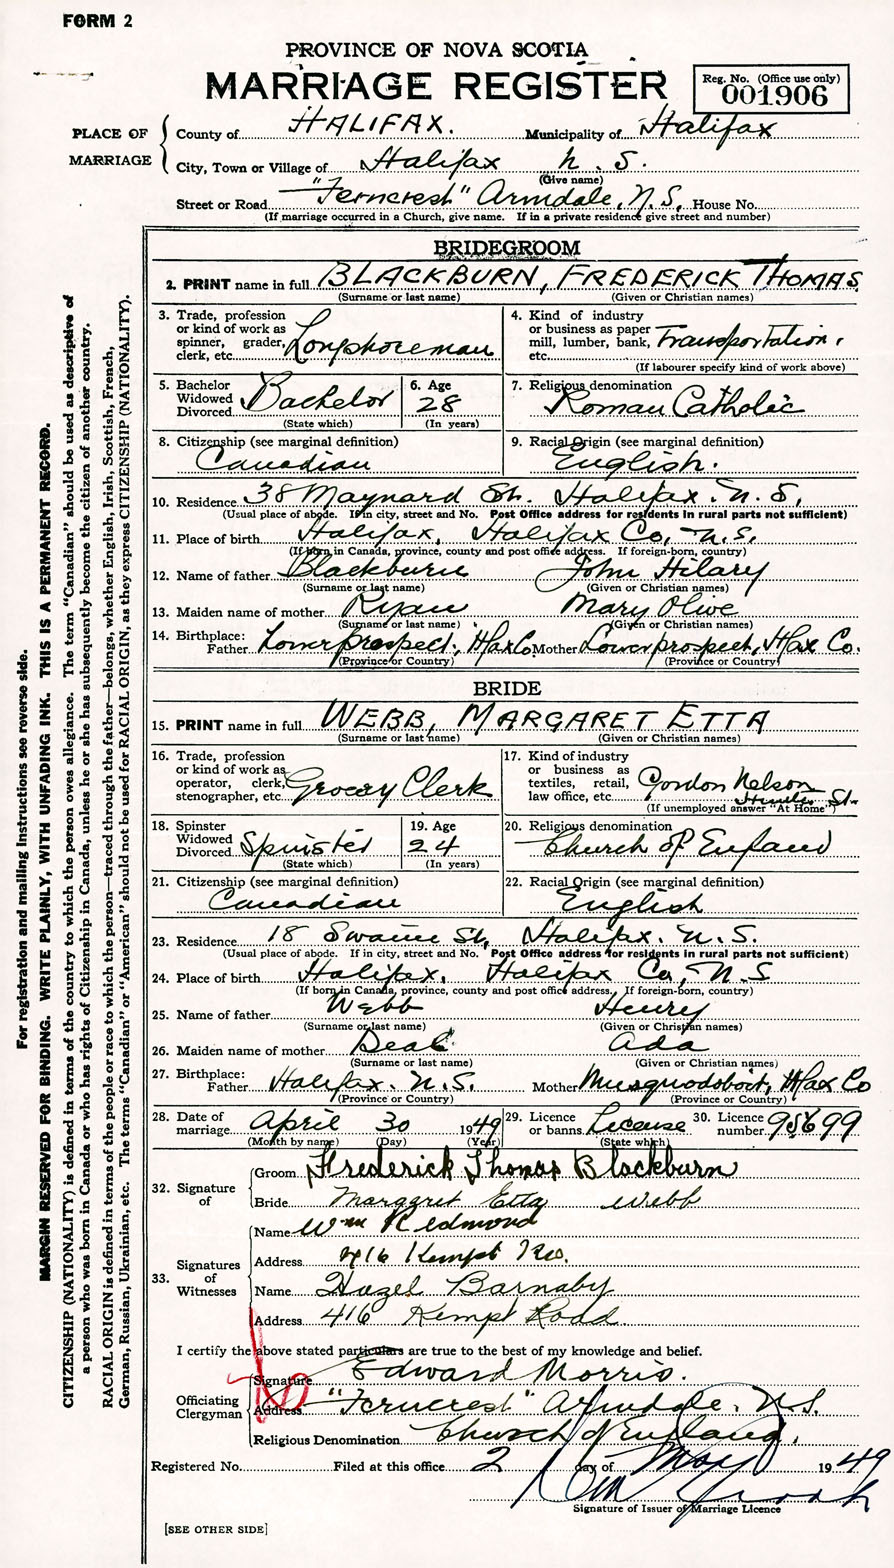 FORM 2
PROVINCE OF NOVA SCOTIA
MARRIAGE REGISTER
Reg. No. (Office use only)
001906
PLACE OF MARRIAGE
County of HALIFAX. Municipality of Halifax
City, Town or Village of Halifax N. S.
(Give name)
Street or Road "Ferncrest" Armdale, N.S. House No.
(If marriage occurred in a Church, give name. If in a private residence give street and number)
BRIDEGROOM
2. PRINT name in full BLACKBURN, FREDERICK THOMAS
(Surname or last name) (Given or Christian names)
3. Trade, profession or kind of work as spinner, grader, clerk, etc. Longshoreman
4. Kind of industry or business as paper mill, lumber, bank, etc. Transportation.
(If labourer specify kind of work above)
5. Bachelor Widowed Divorced Bachelor
(State which)
6. Age 28
(In years)
7. Religious denomination
Roman Catholic
8. Citizenship (see marginal definition)
Canadian
9. Racial Origin (see marginal definition)
English.
10. Residence 38 Maynard St. Halifax. N. S.
(Usual place of abode. If in city, street and No. Post Office address for residents in rural parts not sufficient)
11. Place of birth Halifax, Halifax Co, N.S.
(If born in Canada, province, county and post office address. If foreign-born, country)
12. Name of father Blackburn John Hilary
(Surname or last name) (Given or Christian names)
13. Maiden name of mother Ryan Mary Olive
(Surname or last name) (Given or Christian names)
14. Birthplace:
Father Lower prospect, Hfax Co Mother Lower prospect, Hfax Co.
(Province or Country) (Province or Country)
BRIDE
15. PRINT name in full WEBB, MARGARET ETTA
(Surname or last name) (Given or Christian names)
16. Trade, profession or kind of work as operator, clerk, stenographer, etc. Grocery Clerk
17. Kind of industry or business as textiles, retail, law office, etc. Gordon Nelson St.
(If unemployed answer "At Home")
18. Spinster Widowed Divorced Spinster
(State which)
19. Age 24
(In years)
20. Religious denomination
Church of England
21. Citizenship (see marginal definition)
Canadian
22. Racial Origin (see marginal definition)
English
23. Residence 18 Swaine St, Halifax. N. S.
(Usual place of abode. If in city, street and No. Post Office address for residents in rural parts not sufficient)
24. Place of birth Halifax, Halifax Co, N.S
(If born in Canada, province, county and post office address. If foreign-born, country)
25. Name of father Webb Henry
(Surname or last name) (Given or Christian names)
26. Maiden name of mother Deal Ada
(Surname or last name) (Given or Christian names)
27. Birthplace:
Father Halifax. N.S. Mother Musquodoboit, Hfax Co
(Province or Country) (Province or Country)
28. Date of marriage April 30 1949
(Month by name) (Day) (Year)
29. Licence or banns License
(State which)
30. Licence number 95699
32. Signature of
Groom Frederick Thomas Blackburn
Bride Margaret Etta Webb
33. Signatures of Witnesses
Name Wm Redmond
Address 416 Kempt Rd.
Name Hazel Barnaby
Address 416 Kempt Road.
I certify the above stated particulars are true to the best of my knowledge and belief.
Officiating Clergyman
Signature Edward Morris.
Address "Ferncrest" Armdale. N.S.
Religious Denomination Church of England.
Registered No. Filed at this office 2 day of May 1949
Signature of Issuer of Marriage Licence
[SEE OTHER SIDE]
For registration and mailing instructions see reverse side.
MARGIN RESERVED FOR BINDING. WRITE PLAINLY, WITH UNFADING INK. THIS IS A PERMANENT RECORD.
CITIZENSHIP (NATIONALITY) is defined in terms of the country to which the person owes allegiance. The term "Canadian" should be used as descriptive of
a person who was born in Canada or who has rights of Citizenship in Canada, unless he or she has subsequently become the citizen of another country.
RACIAL ORIGIN is defined in terms of the people or race to which the person—traced through the father—belongs, whether English, Irish, Scottish, French,
German, Russian, Ukrainian, etc. The terms "Canadian" or "American" should not be used for RACIAL ORIGIN, as they express CITIZENSHIP (NATIONALITY).